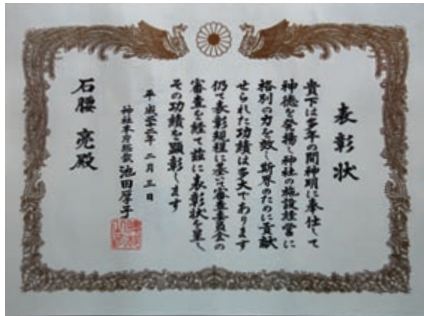 表彰状
貴下は多年の間神明に奉仕して
神徳を発揚し神社の施設経営に
格別の力を致し斯界のために貢献
せられた功績は多大であります
仍て表彰規程に基い審査委員会の
審査を経て茲に表彰状を呈し
その功績を顕彰します
平成廿二年二月三日
神社本庁総裁 池田厚子
石腰亮殿